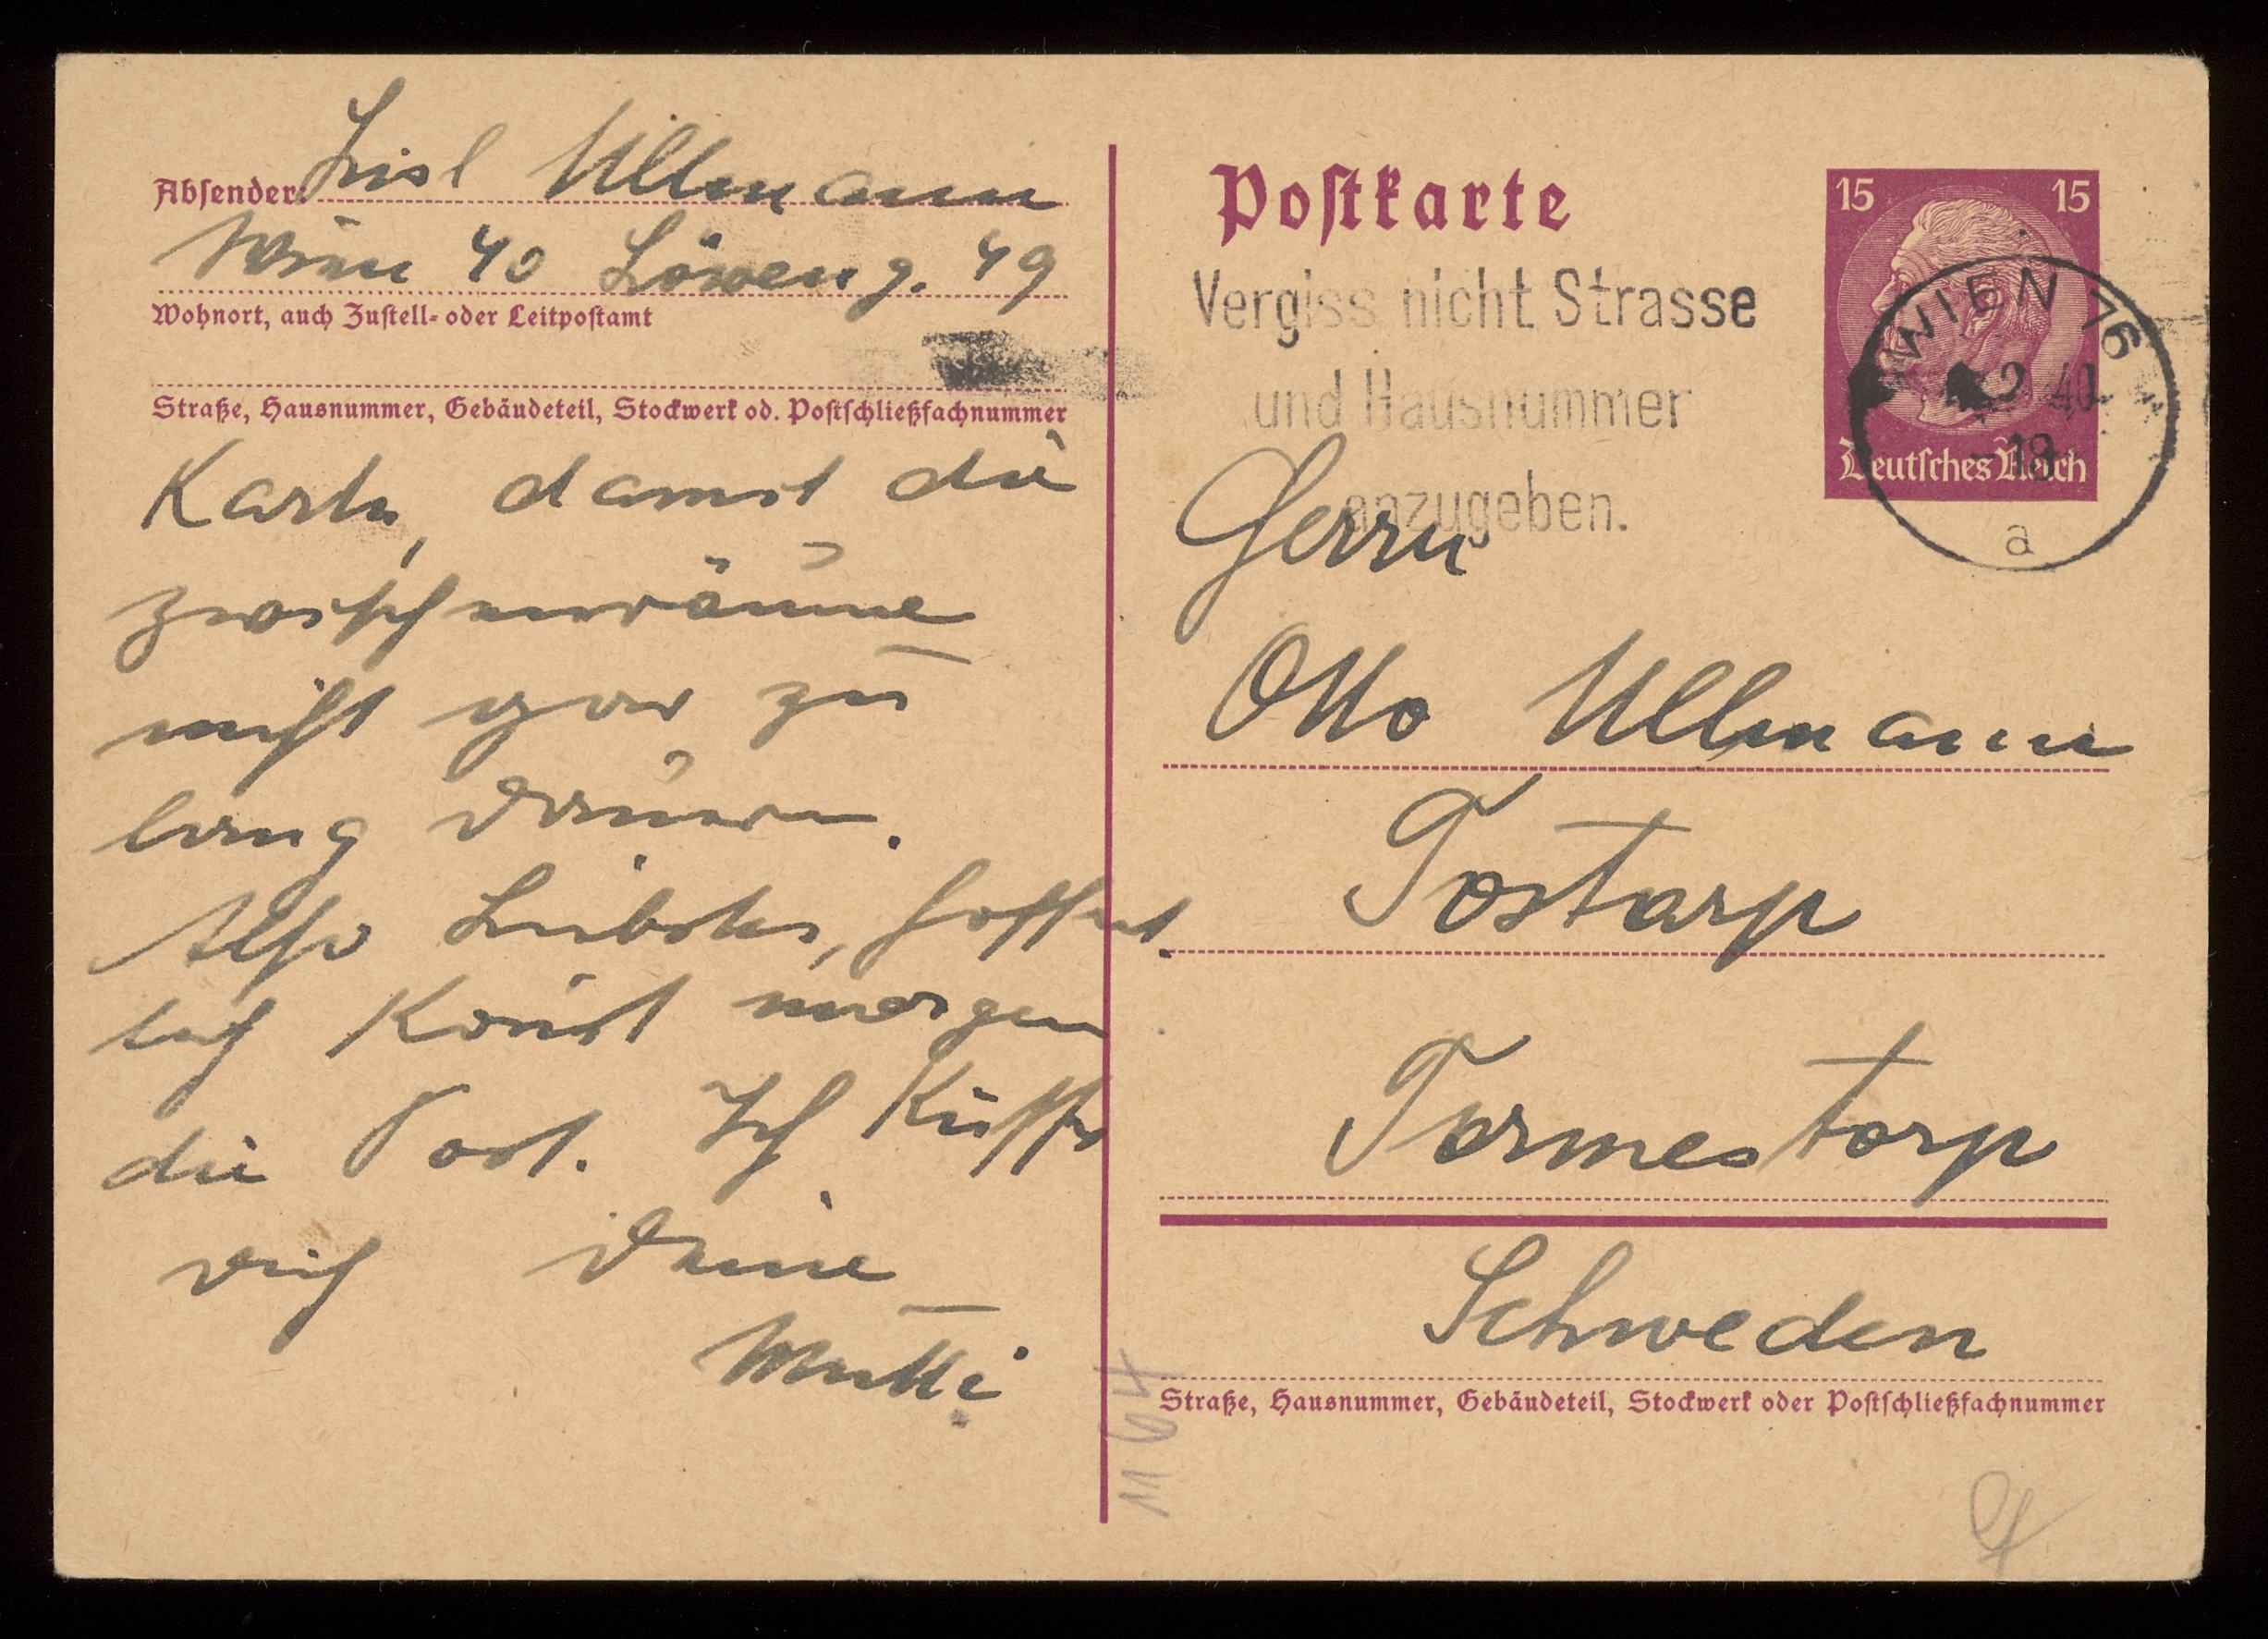 Absender: Lisl Ullmann
Wien 40 Löweng. 49
Wohnort, auch Zustell- oder Leitpostamt
Straße, Hausnummer, Gebäudeteil, Stockwerk od. Postschließfachnummer
Karte, damit die
Zwischenräume
nicht gar zu
lang dauern.
Also Liebstes, hoffent
lich kommt morgen
die Post. Ich küsse
dich Deine
Mutti
Postkarte
15 15
Deutsches Reich
WIEN 76
2. 40
18
a
Vergiss nicht Strasse
und Hausnummer
anzugeben.
Herrn
Otto Ullmann
Tostarp
Tormestorp
Schweden
Straße, Hausnummer, Gebäudeteil, Stockwerk oder Postschließfachnummer